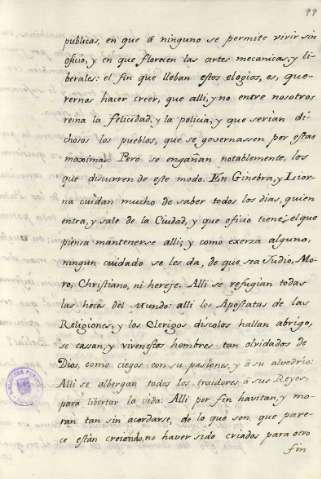 99
publicas, en que à ninguno se permite vivir sin
oficio, y en que florecen las artes mecanicas, y li-
berales: el fin que lleban estos elogios, es, que-
rernos hacer creer, que alli, y no entre nosotros
reina la felicidad, y la policia, y que serian di-
chosos los pueblos, que se governassen por estas
maximas. Pero se engañan notablemente, los
que discurren de este modo. En Ginebra, y Liorna
cuidan mucho de saber todos los dias, quien
entra, y sale de la Ciudad, y que oficio tiene, el que
piensa mantenerse alli; y como exerza alguno,
ningun cuidado se les da, de que sea Judio, Mo-
ro, Christiano, ni hereje. Alli se refugian todas
las heces del Mundo: alli los Apostatas de las
Religiones, y los Clerigos discolos hallan abrigo,
se casan, y viven estos hombres tan olvidados de
Dios, como ciegos con su pasiones, y à su alvedrio:
Alli se albergan todos los traidores à sus Reyes,
para libertar la vida: Alli por fin havitan, y mo-
ran tan sin acordarse, de lo que son que pare-
ce están creiendo, no haver sido criados para otro
fin